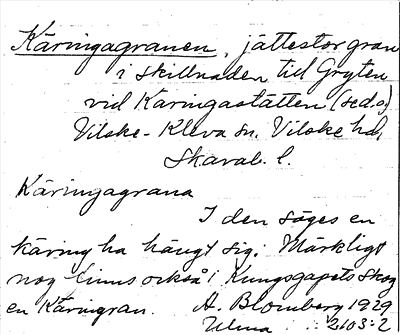 Käringagranen, jättestor gran
i skillnaden till Gryten
vid Käringastätten (se d.o)
Vilske-Kleva sn. Vilske hd,
Skarab. l.
Käringagrana
I den säges en
käring ha hängt sig. Märkligt
nog finns också i Kungsgapets skog
en Käringran. A. Blomberg 1929
Ulma 2103:2